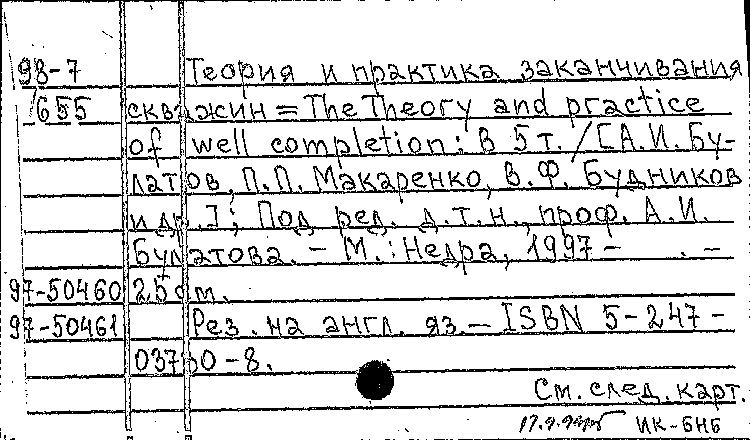 98-7 Теория и практика заканчивания
/655 скважин = The Theory and practice
of well completion: в 5 т. / [А.И. Бу-
латов, П.П. Макаренко, В.Ф. Будников
и др.]; Под ред. д.т.н., проф. А.И.
Булатова. – М.: Недра, 1997 – . –
97-50460 25 см.
97-50461 Рез. на англ. яз. – ISBN 5-247-
03760-8.
См. след. карт.
ИК-БНБ